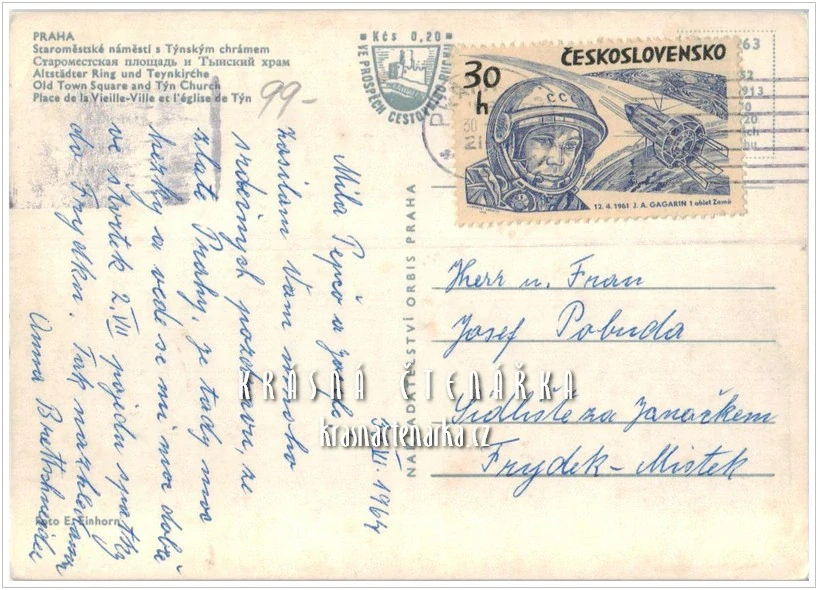 PRAHA
Staroměstské náměstí s Týnským chrámem
Староместская площадь и Тынский храм
Altstädter Ring und Teynkirche
Old Town Square and Týn Church
Place de la Vieille-Ville et l'église de Týn
99-
Kčs 0,20
VE PROSPĚCH CESTOVNÍHO RUCHU
ČESKOSLOVENSKO
30
h
CCC
12. 4. 1961 J. A. GAGARIN 1 oblet Země
NAKLADATELSTVÍ ORBIS PRAHA
VI. 1964
Mila Pepčo a
zasilam Vam mnoho
srdečnych pozdravu, ze
zlate Prahy, je tady moc
hezky a vede se mi moc dobře
ve štvrtek 2. VII pojedu spatky
do Frydku. Tak nazhledanou
Anna Brettschneider
Herr u. Frau
Josef Pobuda
Sidliste za Janačkem
Frydek-Mistek
Foto E. Einhorn
KRÁSNÁ ČTENÁŘKA
krasnactenarka.cz